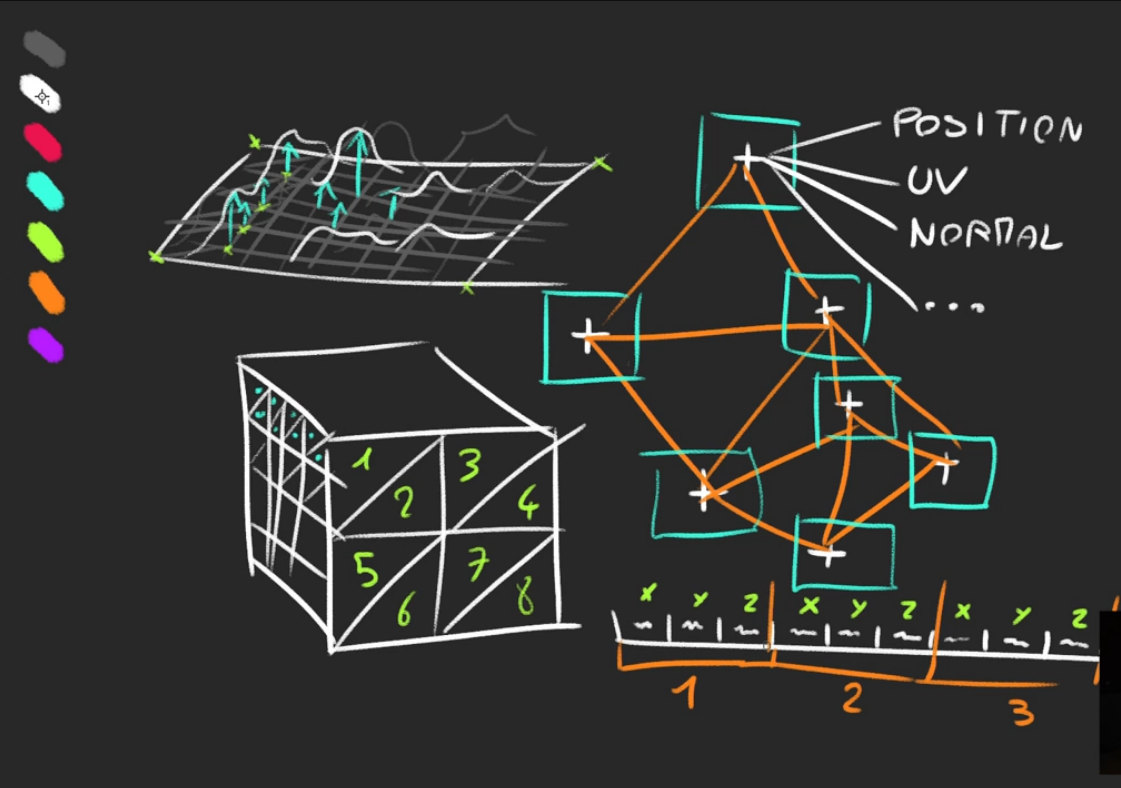 POSITION
UV
NORMAL
...
1 3
2 4
5 7
6 8
x y z x y z x y z
1 2 3